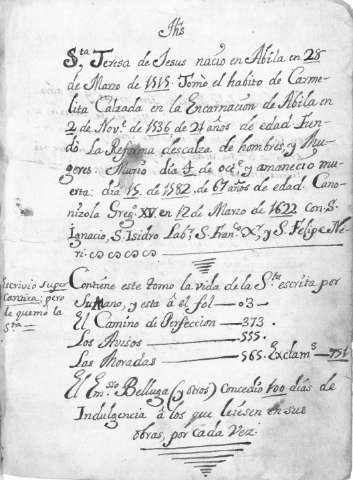 Jhs
Sta Teresa de Jesus nacio en Abila en 28
de Marzo de 1515. Tomò el habito de Carme-
lita Calzada en la Encarnacion de Abila en
2 de Nove de 1536 de 21 años de edad. Fun-
dò La Reforma descalza de hombres, y Mu-
geres. Murio dia 4 de oce y amanecio mu-
erta dia 15 de 1582 de 67 años de edad. Cano-
nizola Grego XV. en 12 de Marzo de 1622 con S.
Ignacio, S. Isidro Labr S. Franco Xr y S. Felipe Ne-
ri.
Escrivio super
Cantica; pero
le quemò la
Sta
Contiene este tomo la vida de la Sta escrita por
su Mano, y esta â el fol — 03 —
El Camino de Perfeccion — 373.
Los Avisos — 555.
Las Moradas — 565. Exclams — 751
El Emo Belluga (y otros) concedio 100 dias de
Indulgencia â los que leiesen en sus
obras, por cada vez.